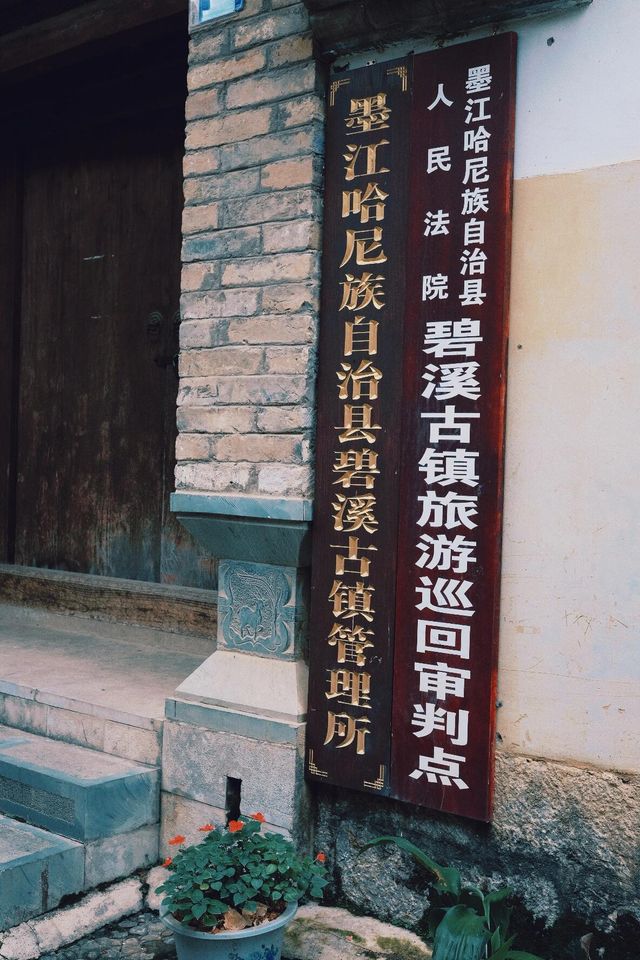 墨江哈尼族自治县
人民法院
碧溪古镇旅游巡回审判点
墨江哈尼族自治县碧溪古镇管理所